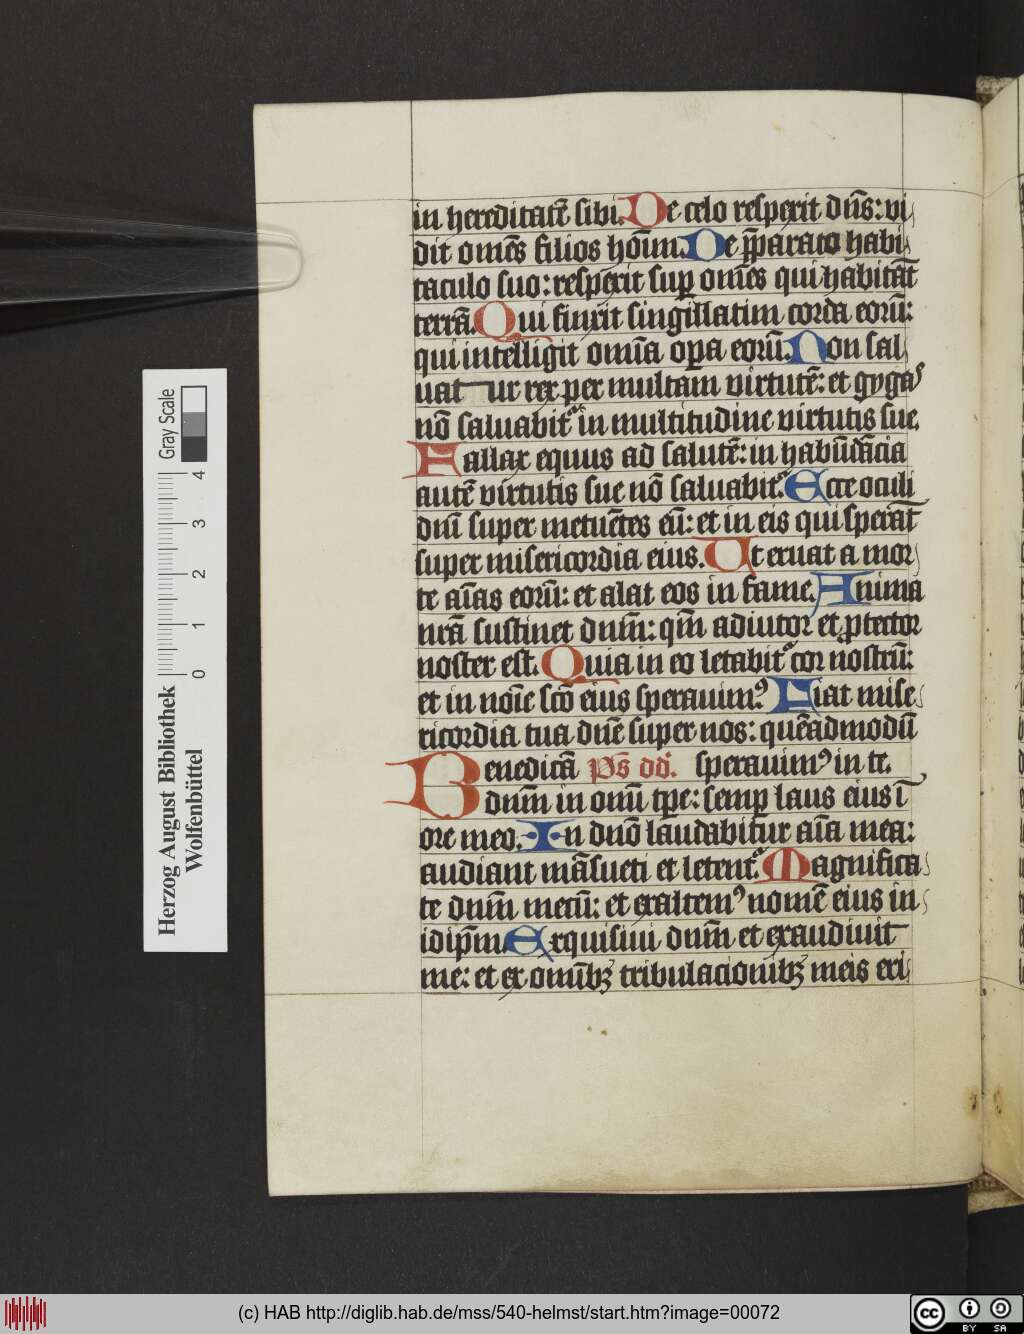 in hereditatē sibi. De celo respexit dn̄s: vi
dit omēs filios hoīm. De p̄parato habi
taculo suo: respexit suꝑ om̄es qui habitāt
terrā. Qui finxit singillatim corda eorū:
qui intelligit om̄ia oꝑa eorū. Non sal
uat ur rex per multam virtutē: et gygas
nō saluabit᷑ in multitudine virtutis sue.
Fallax equus ad salutē: in habūdācia
autē virtutis sue nō saluabit᷑. Ecce oculi
dn̄i super metuētes eū: et in eis qui sperāt
super misericordia eius. Ut eruat a mor
te aīas eorū: et alat eos in fame. Anima
nr̄a sustinet dnm̄: qm̄ adiutor et ꝓtector
noster est. Quia in eo letabit᷑ cor nostrū:
et in noīe scō eius sperauimꝰ. Fiat mise
ricordia tua dn̄e super nos: quēadmodū
Benedicā Ps̄ dd. sperauimꝰ in te.
dnm̄ in om̄i tꝑe: semꝑ laus eius ī
ore meo. In dn̄o laudabitur aīa mea:
audiant māsueti et letent᷑. Magnifica
te dnm̄ mecū: et exaltemꝰ nomē eius in
idip̄m. Exquisiui dnm̄ et exaudiuit
me: et ex om̄ibꝫ tribulacionibꝫ meis eri
Herzog August Bibliothek
Wolfenbüttel
0 1 2 3 4
Gray Scale
(c) HAB http://diglib.hab.de/mss/540-helmst/start.htm?image=00072
cc BY SA